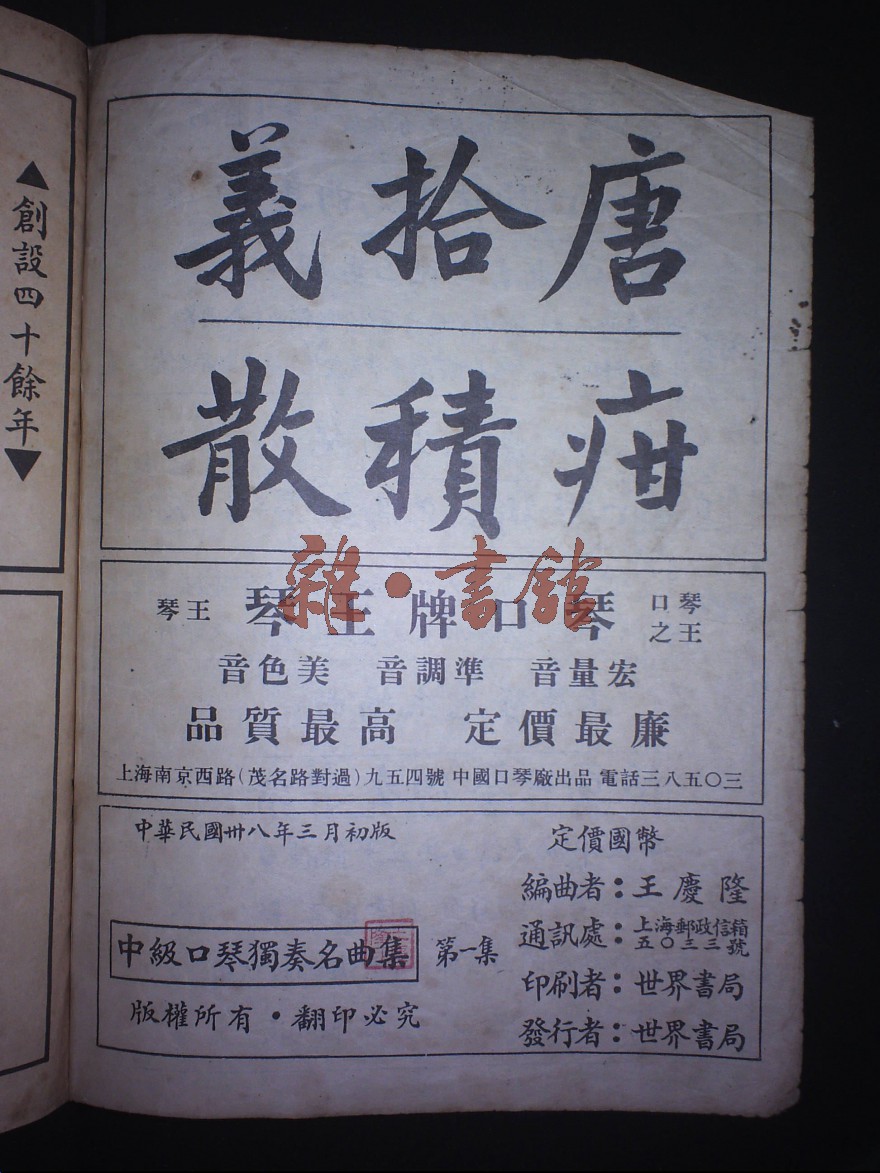 ▲創設四十餘年▼
唐拾義
疳積散
琴王 琴王牌口琴 口琴之王
音色美 音調準 音量宏
品質最高 定價最廉
上海南京西路(茂名路對過)九五四號 中國口琴廠出品 電話三八五〇三
中華民國卅八年三月初版
中級口琴獨奏名曲集 第一集
版權所有·翻印必究
定價國幣
編曲者:王慶隆
通訊處:上海郵政信箱五〇三三號
印刷者:世界書局
發行者:世界書局
雜·書館